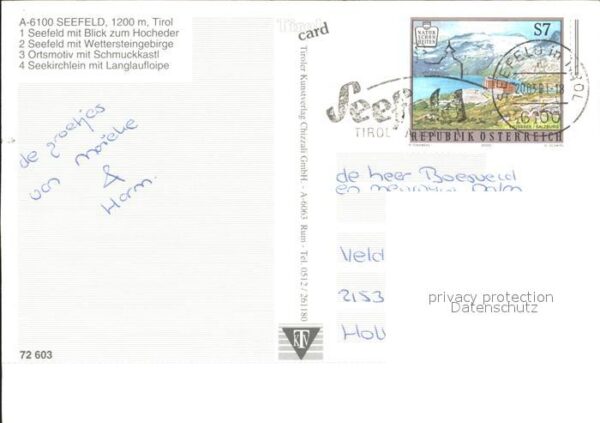 A-6100 SEEFELD, 1200 m, Tirol
1 Seefeld mit Blick zum Hocheder
2 Seefeld mit Wettersteingebirge
3 Ortsmotiv mit Schmuckkastl
4 Seekirchlein mit Langlaufloipe
de groetjes
van
&
Harm.
72 603
Tirol
card
Tiroler Kunstverlag Chizzali GmbH. - A-6063 Rum - Tel. 0512 / 261180
KTV
S7
NATUR
SCHÖNHEITEN
REPUBLIK ÖSTERREICH
Seefeld
TIROL
SEEFELD IN TIROL
6100
de heer Boesveld
en
Veld
2153
Hol
privacy protection
Datenschutz